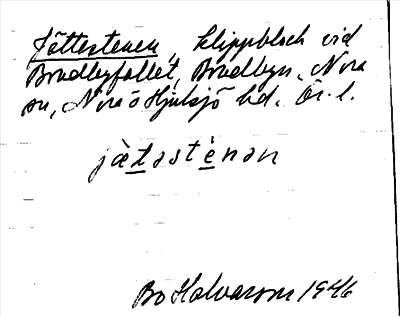 Jättestenen, klippblock vid
Bredbyfallet, Bredbyn, Nora
sn, Nora o Hjulsjö hd. Ör. l.
jätəstènən
Bo Halvarson 1946